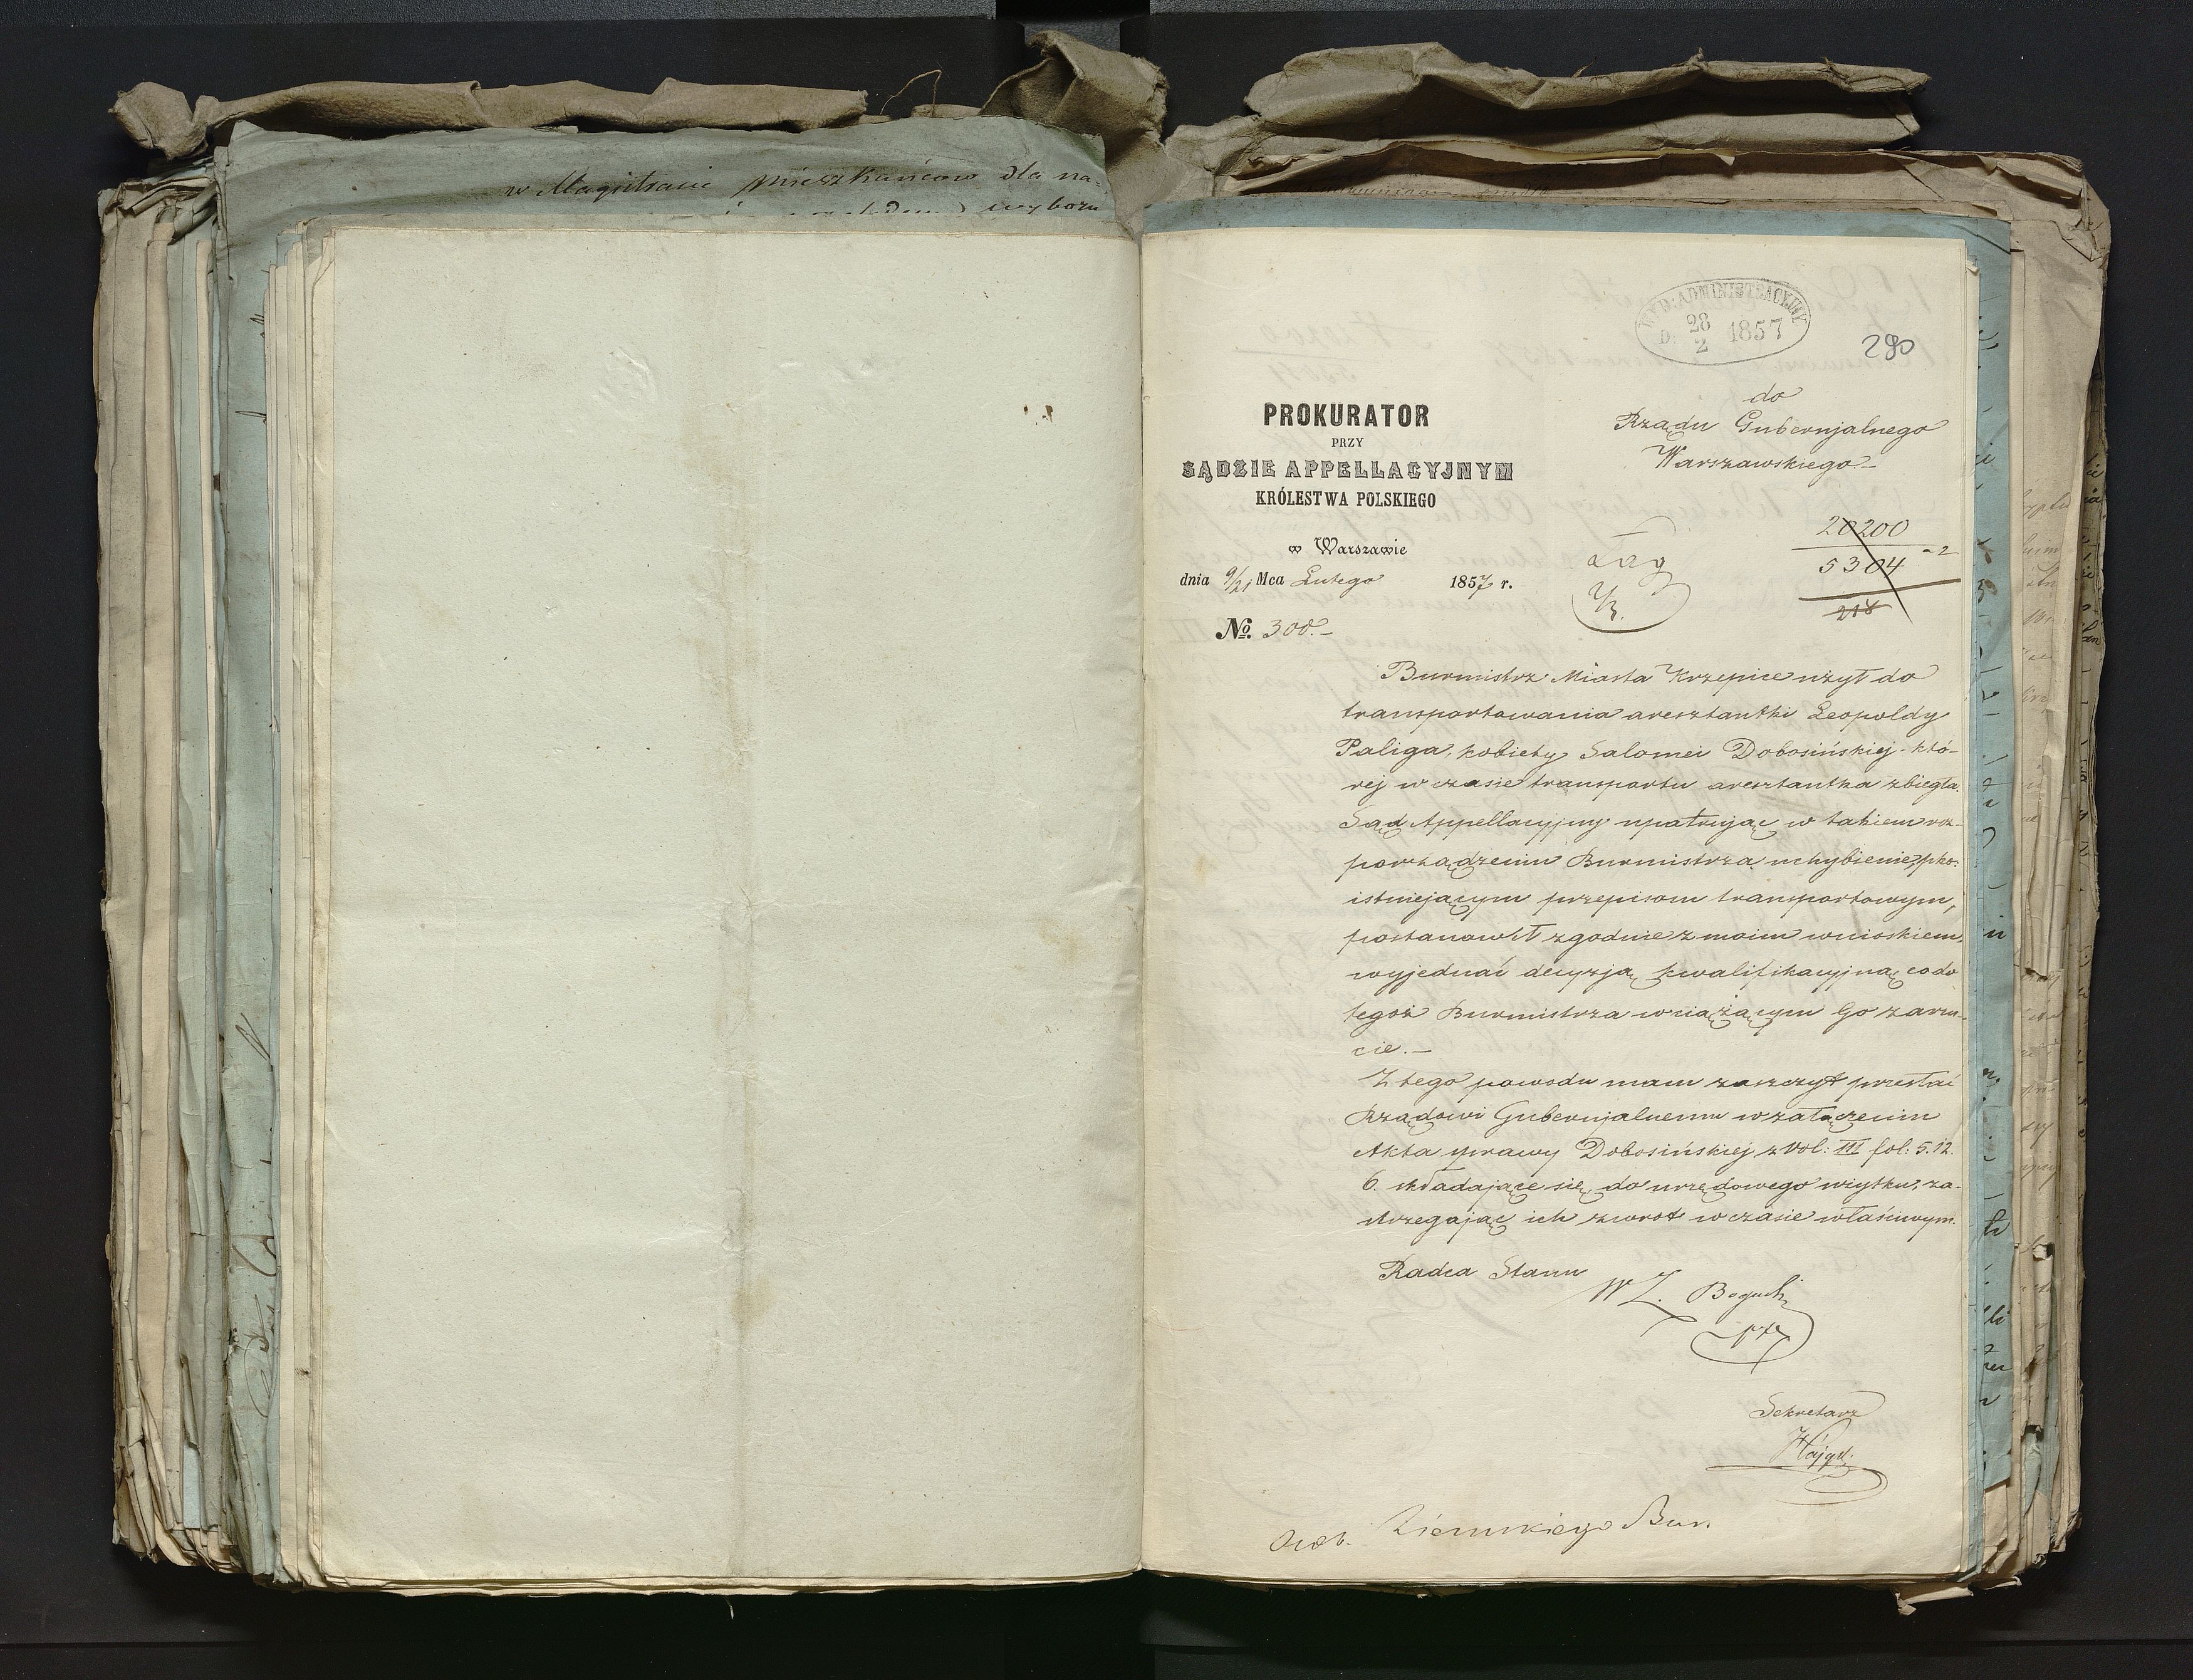 w Magistracie mieszkańców dla na=
wyboru
WYD: ADMINISTRACYJNY
D. 28/2 1857
290
PROKURATOR
PRZY
SĄDZIE APPELLACYJNYM
KRÓLESTWA POLSKIEGO
w Warszawie
dnia 9/21 Mca Lutego 1857 r.
No. 300.–
do
Rządu Gubernjalnego
Warszawskiego–
20200
5304 - 2
218
Burmistrz Miasta Krzepice użył do
transportowania aresztantki Leopoldy
Paliga, kobiety Salomei Dobosińskiej - któ-
rej w czasie transportu aresztantka zbiegła.
Sąd Appellacyjny upatrując w takiem roz-
porządzeniu Burmistrza uchybienie, pko:
istniejącym przepisom transportowym,
postanowił zgodnie z moim wnioskiem,
wyjednać decyzją kwalifikacyjną co do
tegoż Burmistrza w ciążącym Go zarzu-
cie.–
Z tego powodu mam zaszczyt przesłać
Rządowi Gubernjalnemu w załączeniu
Akta sprawy Dobosińskiej z Vol: III fol: 5.12.
6. składające się, do urzędowego użytku, za-
strzegając ich zwrot w czasie właściwym.
Radca Stanu
WZ.
Sekretarz
Ziemskiego Bur.